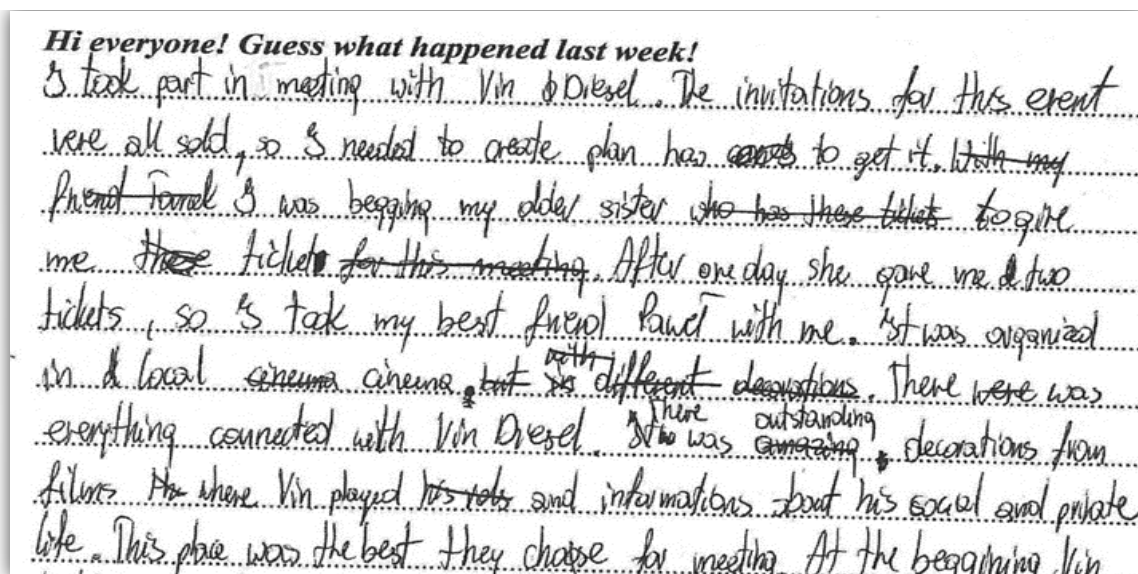 Hi everyone! Guess what happened last week!
I took part in meeting with Vin Diesel. The invitations for this event
were all sold, so I needed to create plan how to get it. With my
friend Paweł I was begging my older sister who has these tickets to give
me these ticket for this meeting. After one day she gave me two
tickets, so I took my best friend Paweł with me. It was organized
in local cinema cinema. but with different decorations. There were was
everything connected with Vin Diesel. There was outstanding amazing decorations from
films where Vin played his role and informations about his social and private
life. This place was the best they choose for meeting. At the beggining Vin